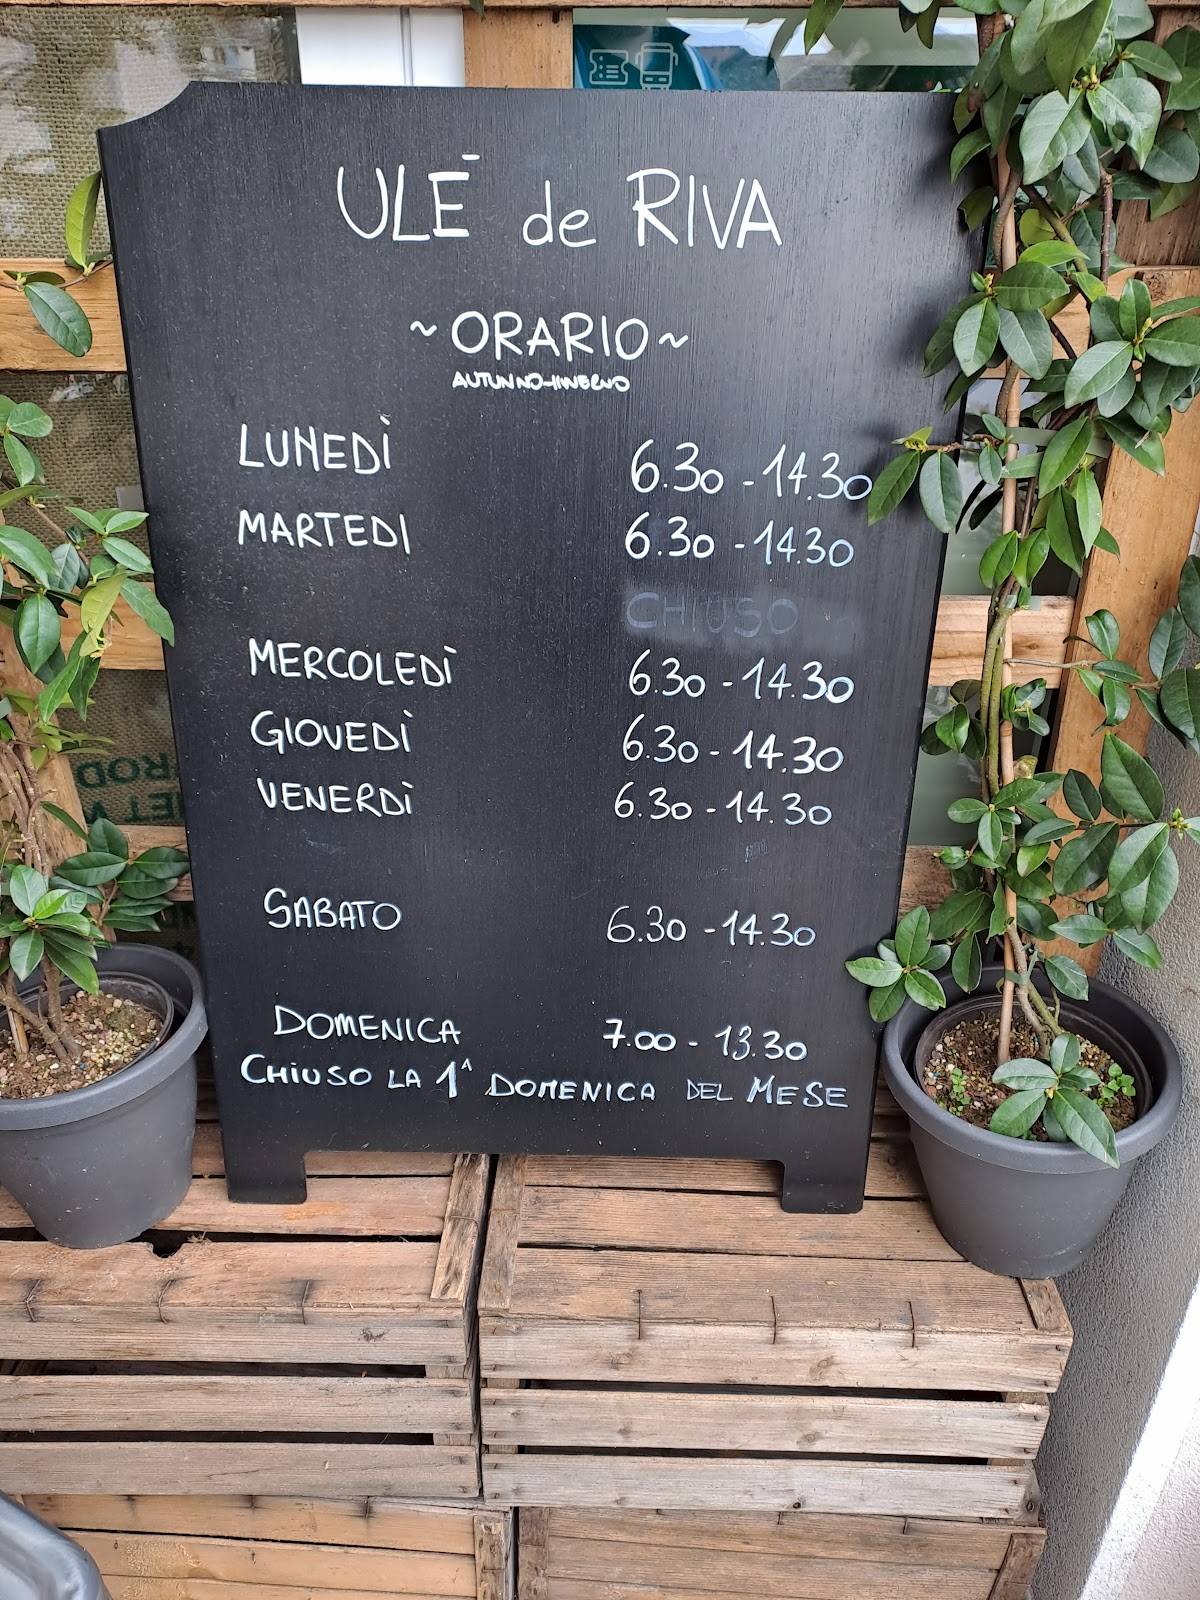 ULĒ de RIVA
~ ORARIO ~
AUTUNNO-INVERNO
LUNEDÌ 6.30 - 14.30
MARTEDI 6.30 - 14.30
CHIUSO
MERCOLEDÌ 6.30 - 14.30
GIOVEDÌ 6.30 - 14.30
VENERDÌ 6.30 - 14.30
SABATO 6.30 - 14.30
DOMENICA 7.00 - 13.30
CHIUSO LA 1^ DOMENICA DEL MESE